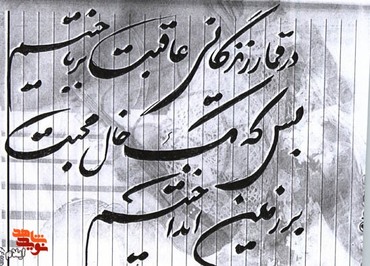 در قمار زندگانی عاقبت ما باختیم
بس که تک خال محبت
بر زمین انداختیم
نوید شاهد